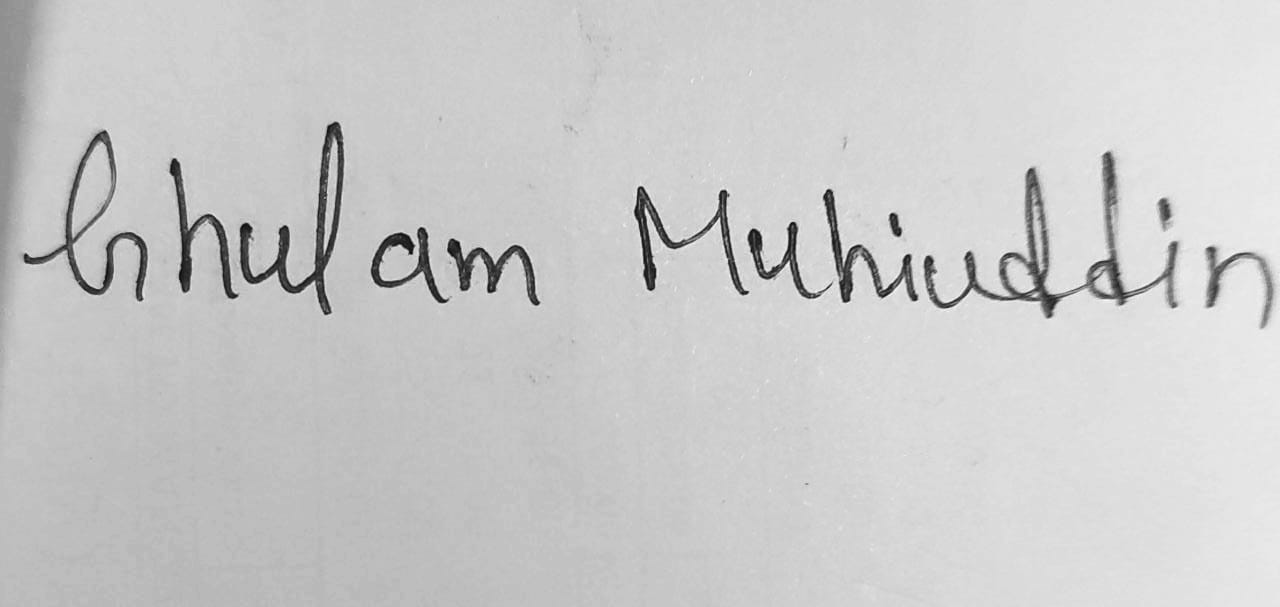 Ghulam Muhiuddin